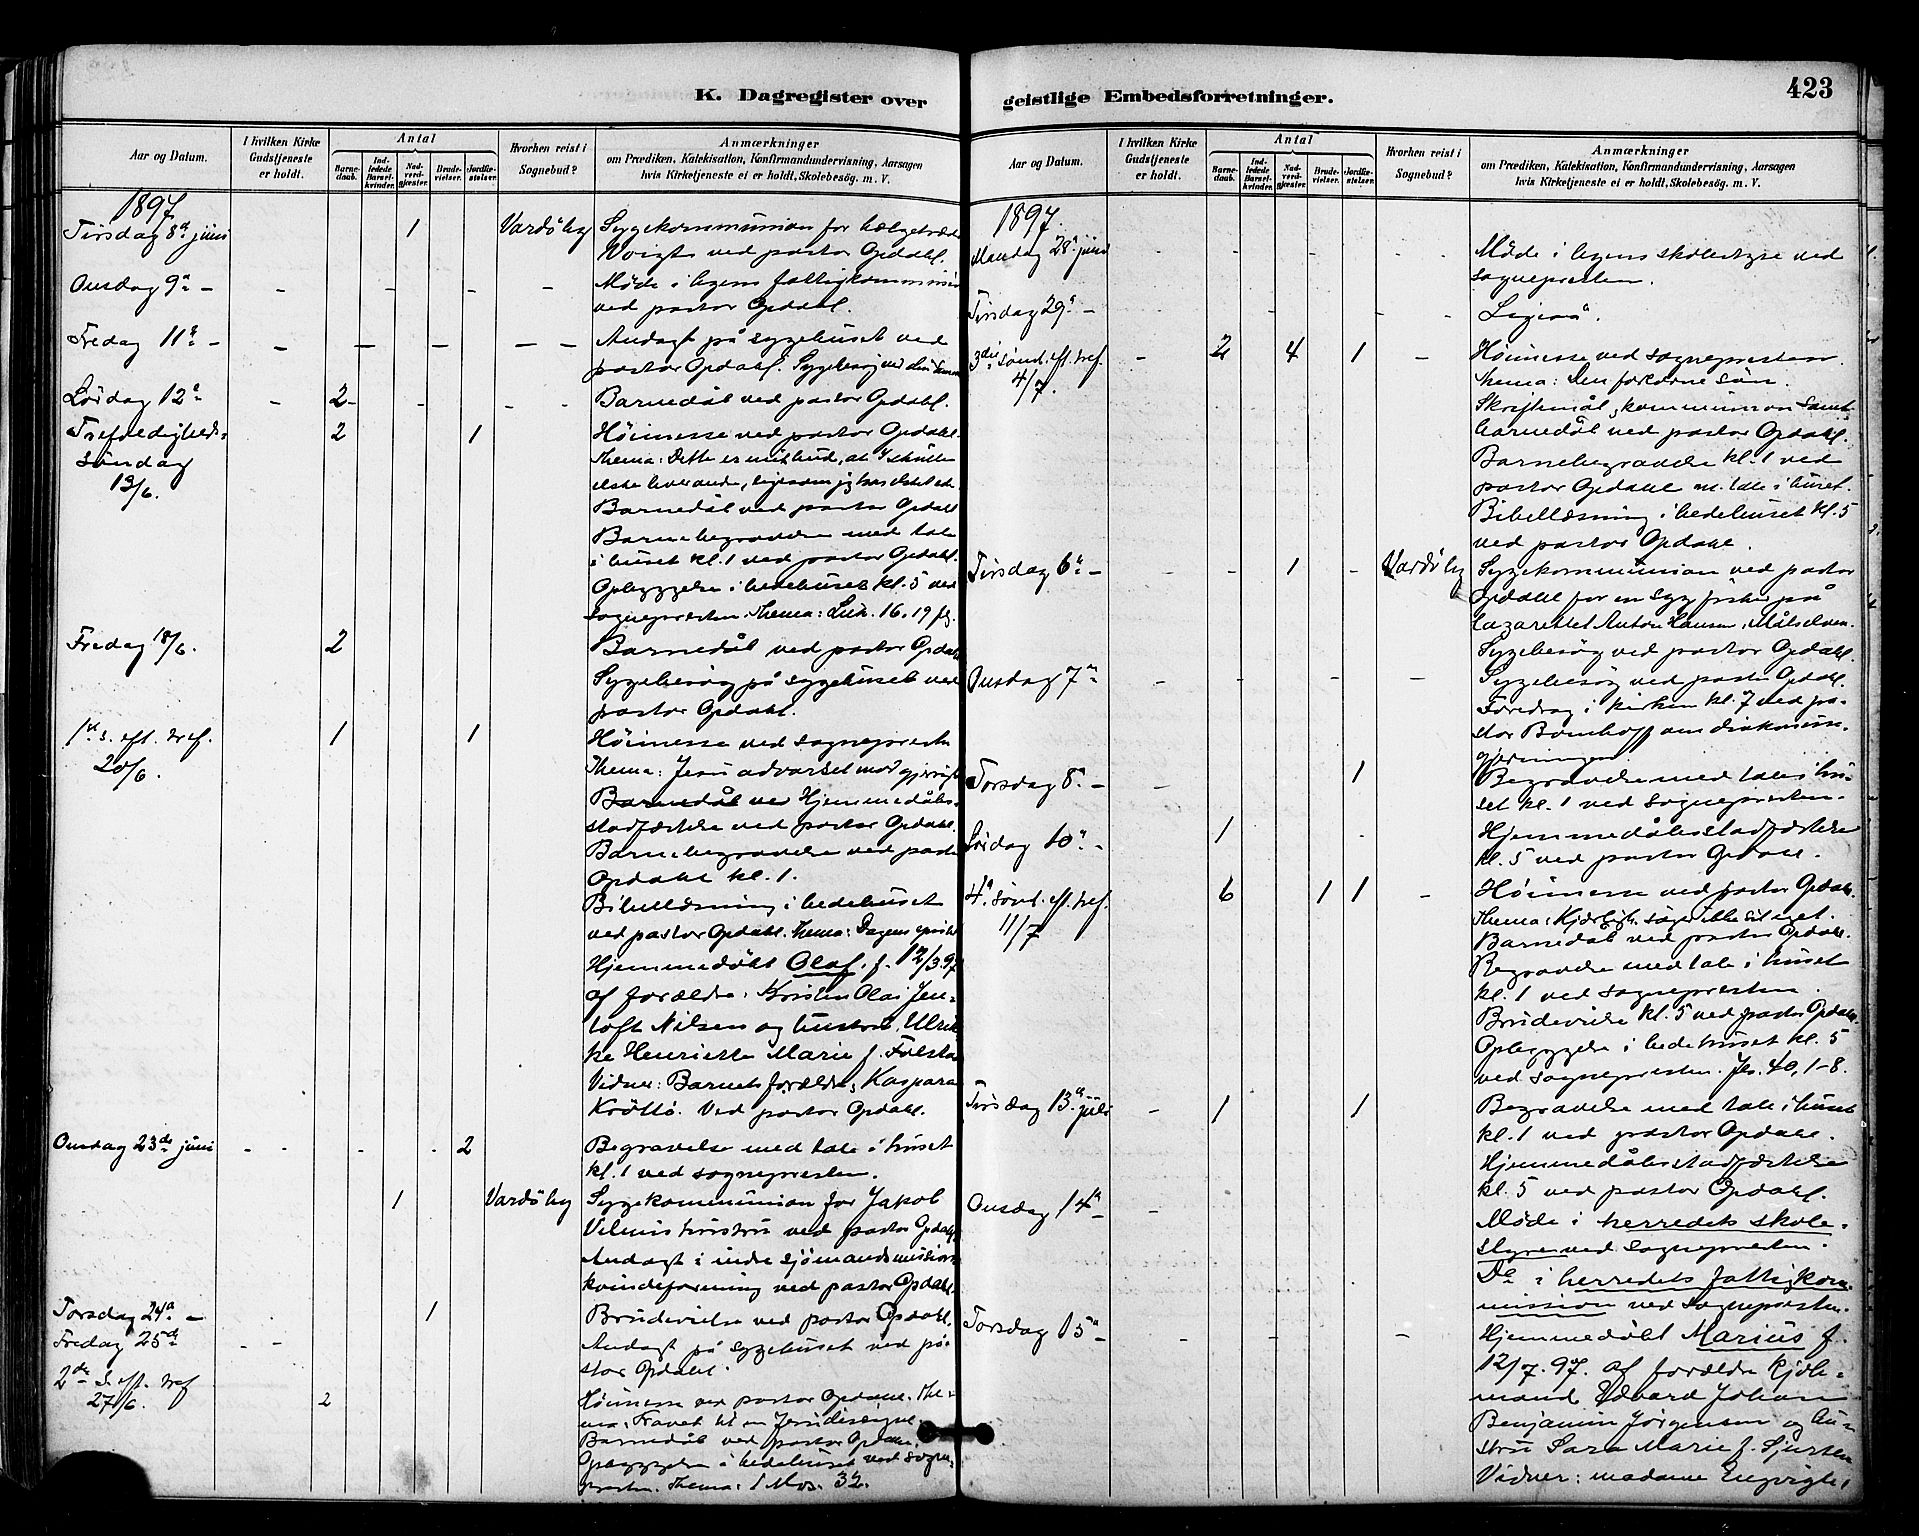 423
K. Dagregister over
Aar og Datum.
I hvilken Kirke Gudstjeneste er holdt.
Antal
Barnedaab.
Indledede Barselkvinder.
Nadverdgjester.
Brudevielser.
Jordfæstelser.
Hvorhen reist i Sognebud?
Anmærkninger
om Prædiken, Katekisation, Konfirmandundervisning, Aarsagen
hvis Kirketjeneste ei er holdt, Skolebesøg. m. V.
1897.
Tirsdag 8de juni 1 Vardøby Sygekommunion for
Voigt ved pastor Opdahl.
Onsdag 9de - Møde i byens fattigkommission
ved pastor Opdahl.
Fredag 11te - Andagt på sygehuset ved
pastor Opdahl. Sygebesøg ved
Lørdag 12te 2 Barnedåb ved pastor Opdahl.
Trefoldigheds- 2 1 Høimesse ved pastor Opdahl.
søndag Thema: Dette er mit bud, at I skulle
13/6. elske hverandre, ligesom jeg har elsket eder.
Barnedåb ved pastor Opdahl
Barnebegravelse med tale
i huset kl. 1 ved pastor Opdahl.
Opbyggelse i bedehuset kl. 5 ved
sognepresten. Thema: Luk. 16. 19 flg.
Fredag 18/6. 2 Barnedåb ved pastor Opdahl
Sygebesøg på sygehuset ved
pastor Opdahl.
1ste s. eft. tref. 1 1 Høimesse ved sognepresten
20/6. Thema: Jesu advarsel mod gjerrighed
Barnedåb ved Hjemmedåbs-
stadfæstelse ved pastor Opdahl.
Barnebegravelse ved pastor
Opdahl kl. 1.
Bibellæsning i bedehuset
ved pastor Opdahl. Thema: Dagens epistel
Hjemmedøbt Olaf, f. 12/3.97
af forældre: Kristen Olai Jen-
toft Nilsen og hustru, Ulrik-
ke Henriette Marie f. Falstad
Vidner: Barnets forældre, Kaspara
Krøttø. Ved pastor Opdahl.
Onsdag 23de juni 2 Begravelse med tale i huset
kl. 1 ved sognepresten.
1 Vardøby Sygekommunion for Jakob
hustru ved pastor Opdahl
Andagt i indre sjømandsmissions
kvindeforening ved pastor Opdahl.
Torsdag 24de - 1 Brudevielse ved pastor Opdahl.
Fredag 25de Andagt på sygehuset ved pa-
stor Opdahl.
2den s. eft. tref Høimesse ved pastor Opdahl. The-
27/6. 2 ma:
Barnedåb ved pastor Opdahl.
Opbyggelse i bedehuset ved sogne-
presten. Thema: 1 Mos. 32.
geistlige Embedsforretninger.
Aar og Datum.
I hvilken Kirke Gudstjeneste er holdt.
Antal
Barnedaab.
Indledede Barselkvinder.
Nadverdgjester.
Brudevielser.
Jordfæstelser.
Hvorhen reist i Sognebud?
Anmærkninger
om Prædiken, Katekisation, Konfirmandundervisning, Aarsagen
hvis Kirketjeneste ei er holdt, Skolebesøg. m. V.
1897.
Mandag 28de juni Møde i byens skolestyre ved
sognepresten.
Tirsdag 29de - Ligeså.
3die sønd. eft. tref. 2 4 1 Høimesse ved sognepresten
4/7. Thema: Den fortabte søn.
Skriftemål, kommunion samt
barnedåb ved pastor Opdahl.
Barnebegravelse kl. 1 ved
pastor Opdahl m. tale i huset.
Bibellæsning i bedehuset kl. 5
ved pastor Opdahl.
Tirsdag 6te - 1 Vardøby Sygekommunion ved pastor
Opdahl for en syg fisker på
lazarettet Anton Hansen, Målselven.
Sygebesøg ved pastor Opdahl.
Onsdag 7de Sygebesøg ved pastor Opdahl.
Foredrag i kirken kl. 7 ved pa-
stor Bomhoff om diakonisse-
gjerningen.
Torsdag 8de - 1 Begravelse med tale i hu-
set kl. 1 ved sognepresten.
Lørdag 10de - 1 Hjemmedåbsstadfæstelse
kl. 5 ved pastor Opdahl.
4de sønd. eft. tref. 6 1 1 Høimesse ved pastor Opdahl.
11/7 Thema: Kjærligh. søger ikke sit eget.
Barnedåb ved pastor Opdahl.
Begravelse med tale i huset
kl. 1 ved sognepresten.
Brudevielse kl. 5 ved pastor Opdahl.
Opbyggelse i bedehuset kl. 5
ved sognepresten. Jes. 40, 1-8.
Tirsdag 13de juli 1 1 Begravelse med tale i huset
kl. 1 ved pastor Opdahl.
Hjemmedåbsstadfæstelse
kl. 5 ved pastor Opdahl.
Onsdag 14de Møde i herredets skole-
styre ved sognepresten.
Do i herredets fattigkom-
mission ved sognepresten.
Torsdag 15de - Hjemmedøbt Marius f.
12/7.97. af forældre Kjøb-
mand Edvard Johan
Benjamin Jørgensen og hu-
stru Sara Marie f. Sjursen
Vidner: madame Engvigh,